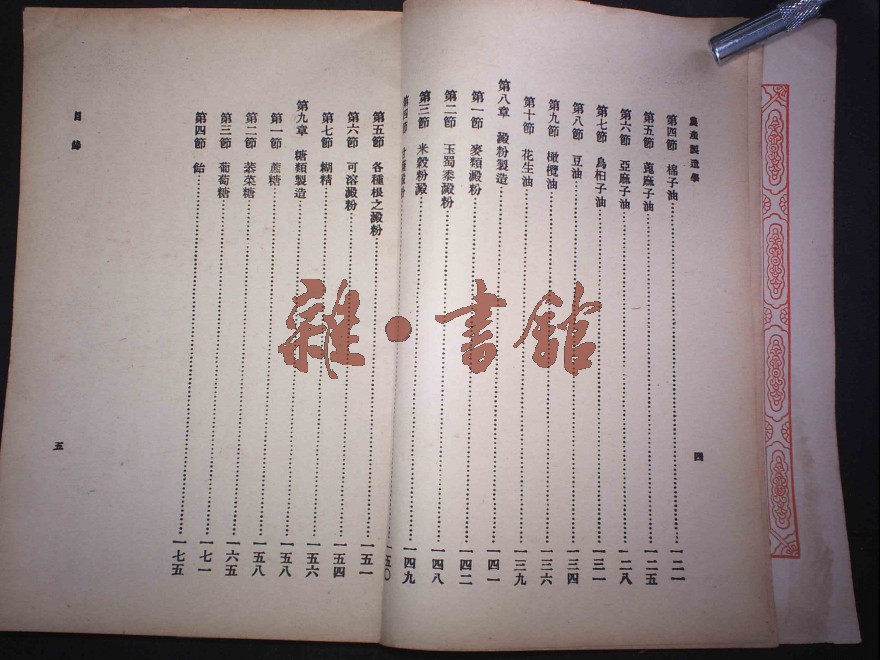 農產製造學
第四節 棉子油……一二一
第五節 蓖麻子油……一二五
第六節 亞麻子油……一二八
第七節 烏桕子油……一三一
第八節 豆油……一三四
第九節 橄欖油……一三六
第十節 花生油……一三九
第八章 澱粉製造……一四一
第一節 麥類澱粉……一四二
第二節 玉蜀黍澱粉……一四八
第三節 米穀粉澱……一四九
第四節……一五〇
四
第五節 各種根之澱粉……一五一
第六節 可溶澱粉……一五四
第七節 糊精……一五六
第九章 糖類製造……一五八
第一節 蔗糖……一五八
第二節 菾菜糖……一六五
第三節 葡萄糖……一七一
第四節 飴……一七五
目錄
五
雜·書館